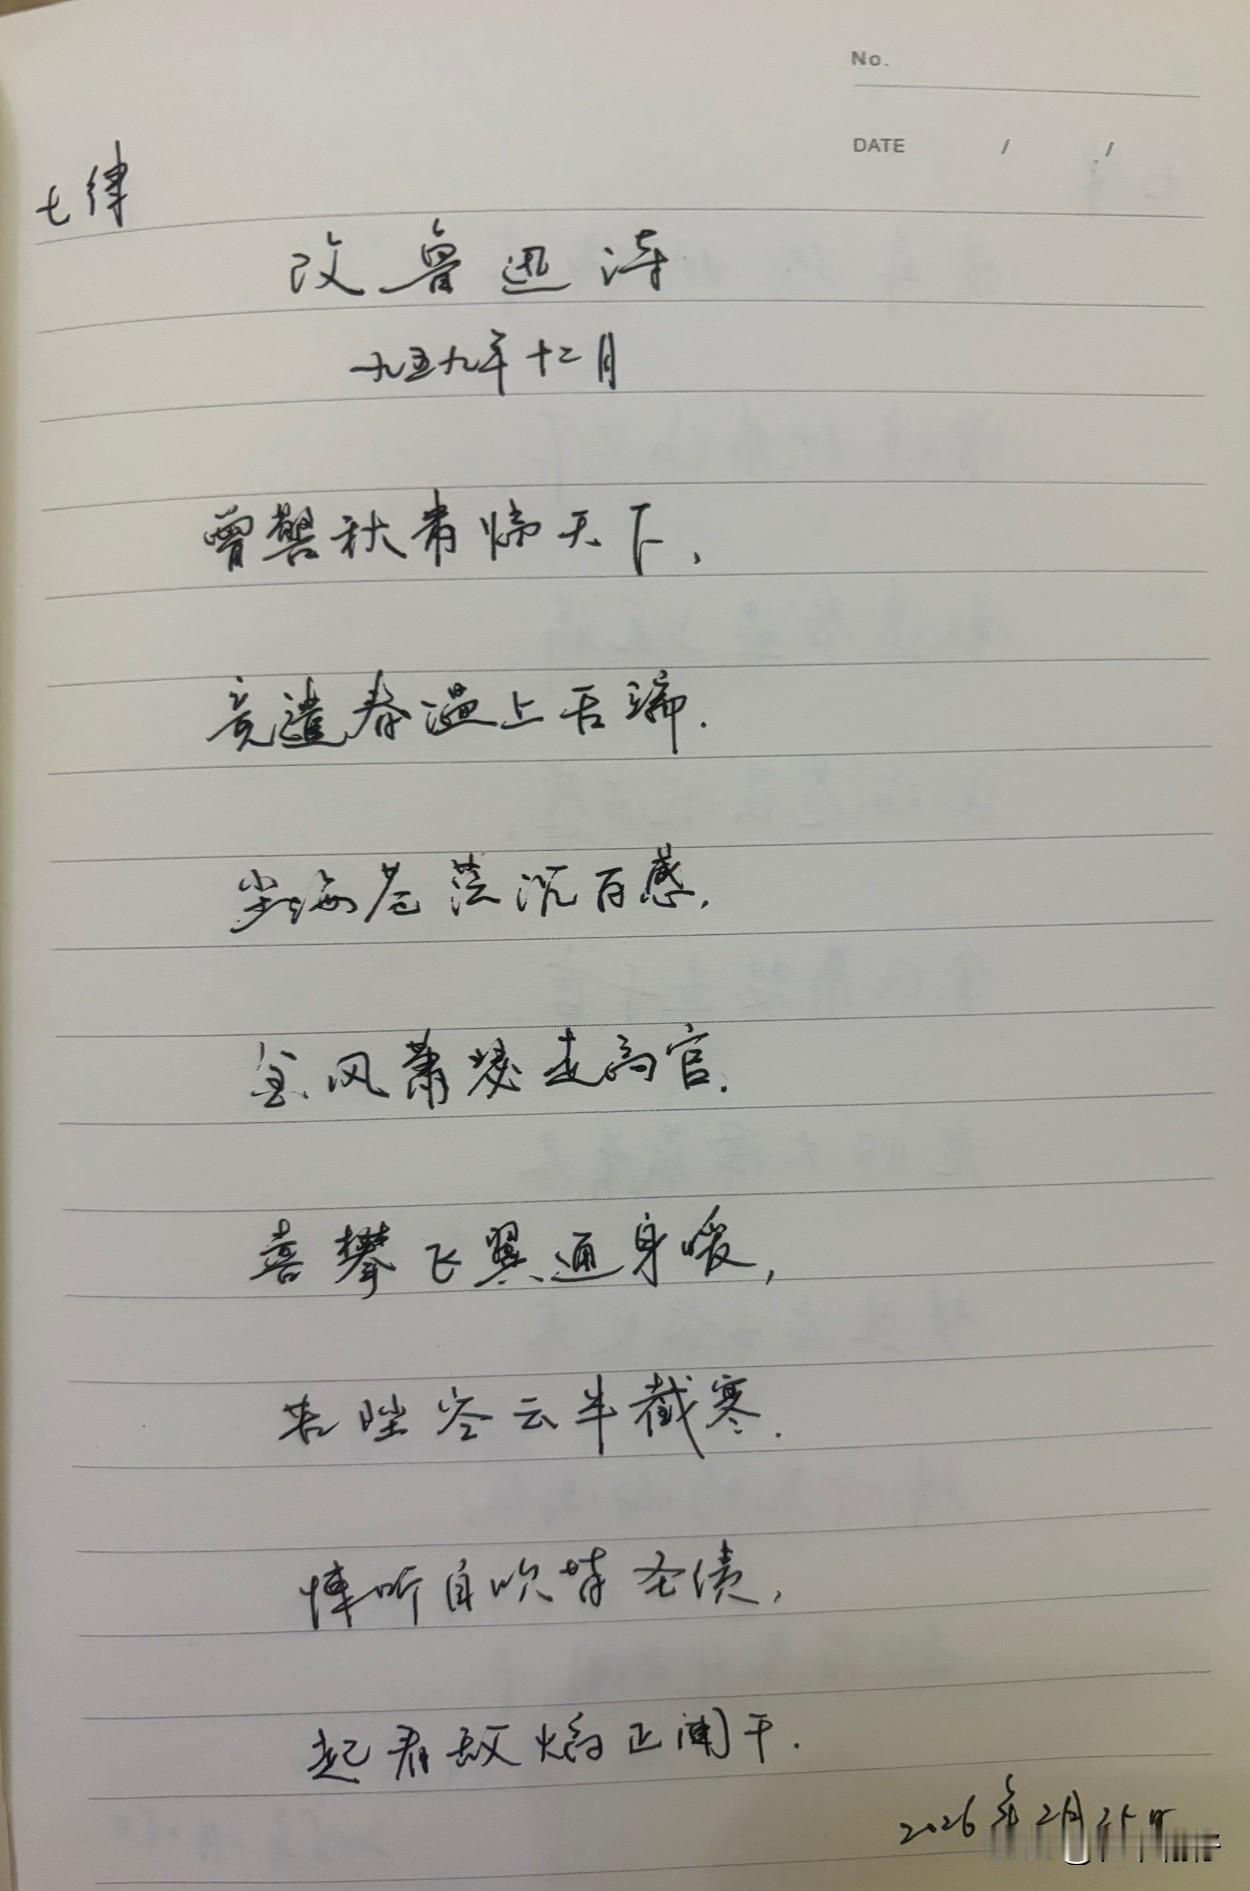 No.
DATE / /
七律
改鲁迅诗
一九五九年十二月
曾警秋肃临天下,
竟遣春温上舌端.
尘海苍茫沉百感,
金风萧瑟走高官.
喜攀飞翼通身暖,
苦坠空云半截寒.
悚听自吹皆圣绩,
起看敌焰正阑干.
2026年2月25日